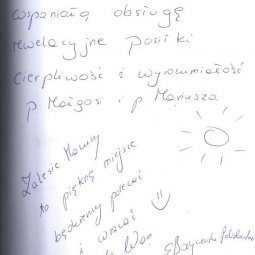 wspaniałą obsługę
rewelacyjne posiłki
cierpliwość i wyrozumiałość
p Małgosi i p Mariusza
Zalesie Mazury
to piękne miejsce
będziemy polecać
i wracać
do Was